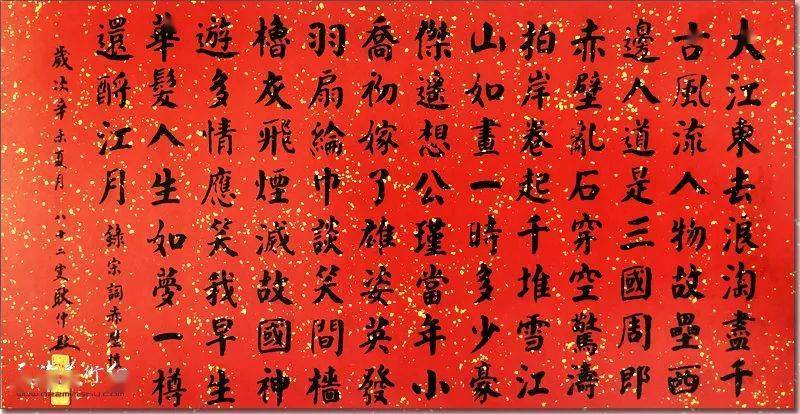 大江東去浪淘盡千
古風流人物故壘西
邊人道是三國周郎
赤壁亂石穿空驚濤
拍岸卷起千堆雪江
山如畫一時多少豪
傑遙想公瑾當年小
喬初嫁了雄姿英發
羽扇綸巾談笑間檣
櫓灰飛煙滅故國神
遊多情應笑我早生
華髮人生如夢一樽
還酹江月 錄宋詞赤壁
歲次辛未夏月八十二叟